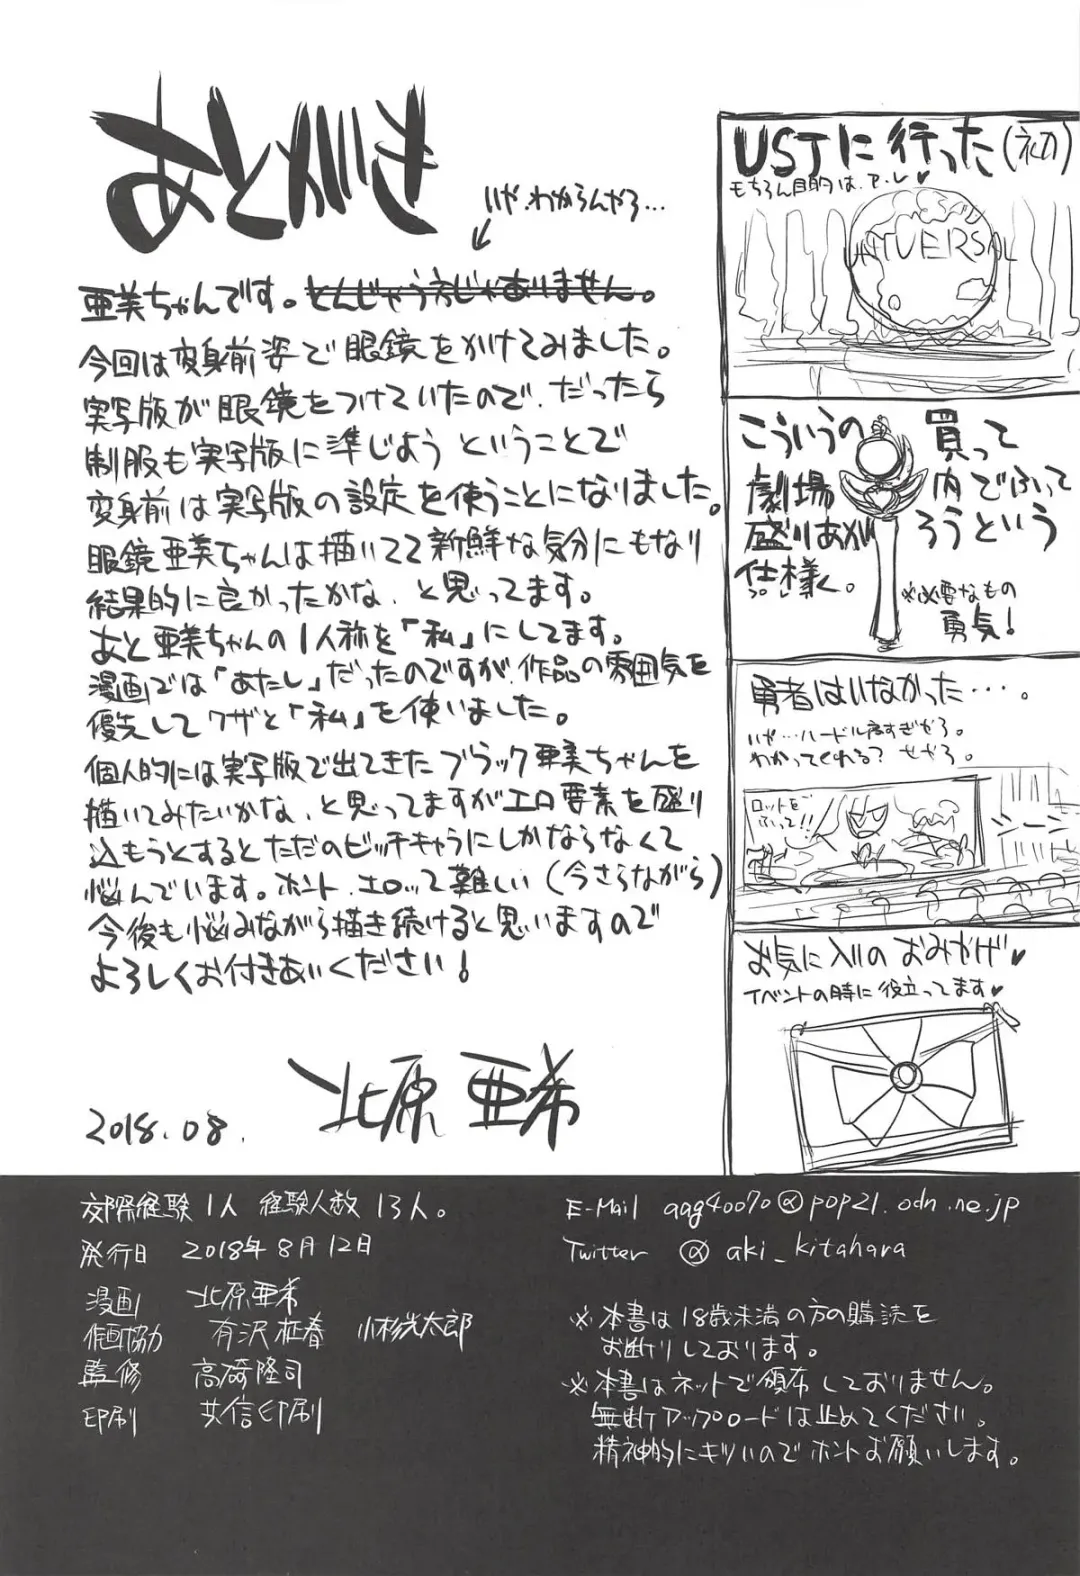 あとがき
いや、わからんやろ…
亜美ちゃんです。とんじゃう方じゃありません。
今回は変身前姿で眼鏡をかけてみました。
実写版が眼鏡をつけていたので、だったら
制服も実写版に準じよう ということで
変身前は実写版の設定を使うことになりました。
眼鏡亜美ちゃんは描いてて新鮮な気分にもなり
結果的に良かったかな、と思ってます。
あと亜美ちゃんの1人称を「私」にしてます。
漫画では「あたし」だったのですが、作品の雰囲気を
優先してワザと「私」を使いました。
個人的には実写版で出てきたブラック亜美ちゃんを
描いてみたいかな、と思ってますがエロ要素を盛り
込もうとするとただのビッチキャラにしかならなくて
悩んでいます。ホント、エロって難しい(今さらながら)
今後も悩みながら描き続けると思いますので
よろしくお付きあいください!
2018.08.
北原亜希
USJに行った(初)
もちろん目的は、
UNIVERSAL
こういうの買って
劇場内でふって
盛りあがろうという
仕様く。
※必要なもの
勇気!
勇者はいなかった・・・。
いや…ハードル高すぎやろ。
わかってくれる? せやろ。
ロットを
ふって!!
お気に入りのおみやげ♥
イベントの時に役立ってます♥
交際経験 1人 経験人数 13人。
発行日 2018年8月12日
漫画 北原亜希
作画協力 有沢 小杉光太郎
監修 高碕隆司
印刷 共信印刷
E-Mail aag40070@pop21.odn.ne.jp
Twitter @aki_kitahara
※本書は18歳未満の方の購読を
お断りしております。
※本書はネットで頒布しておりません。
無断アップロードは止めてください。
精神的にキツいのでホントお願いします。